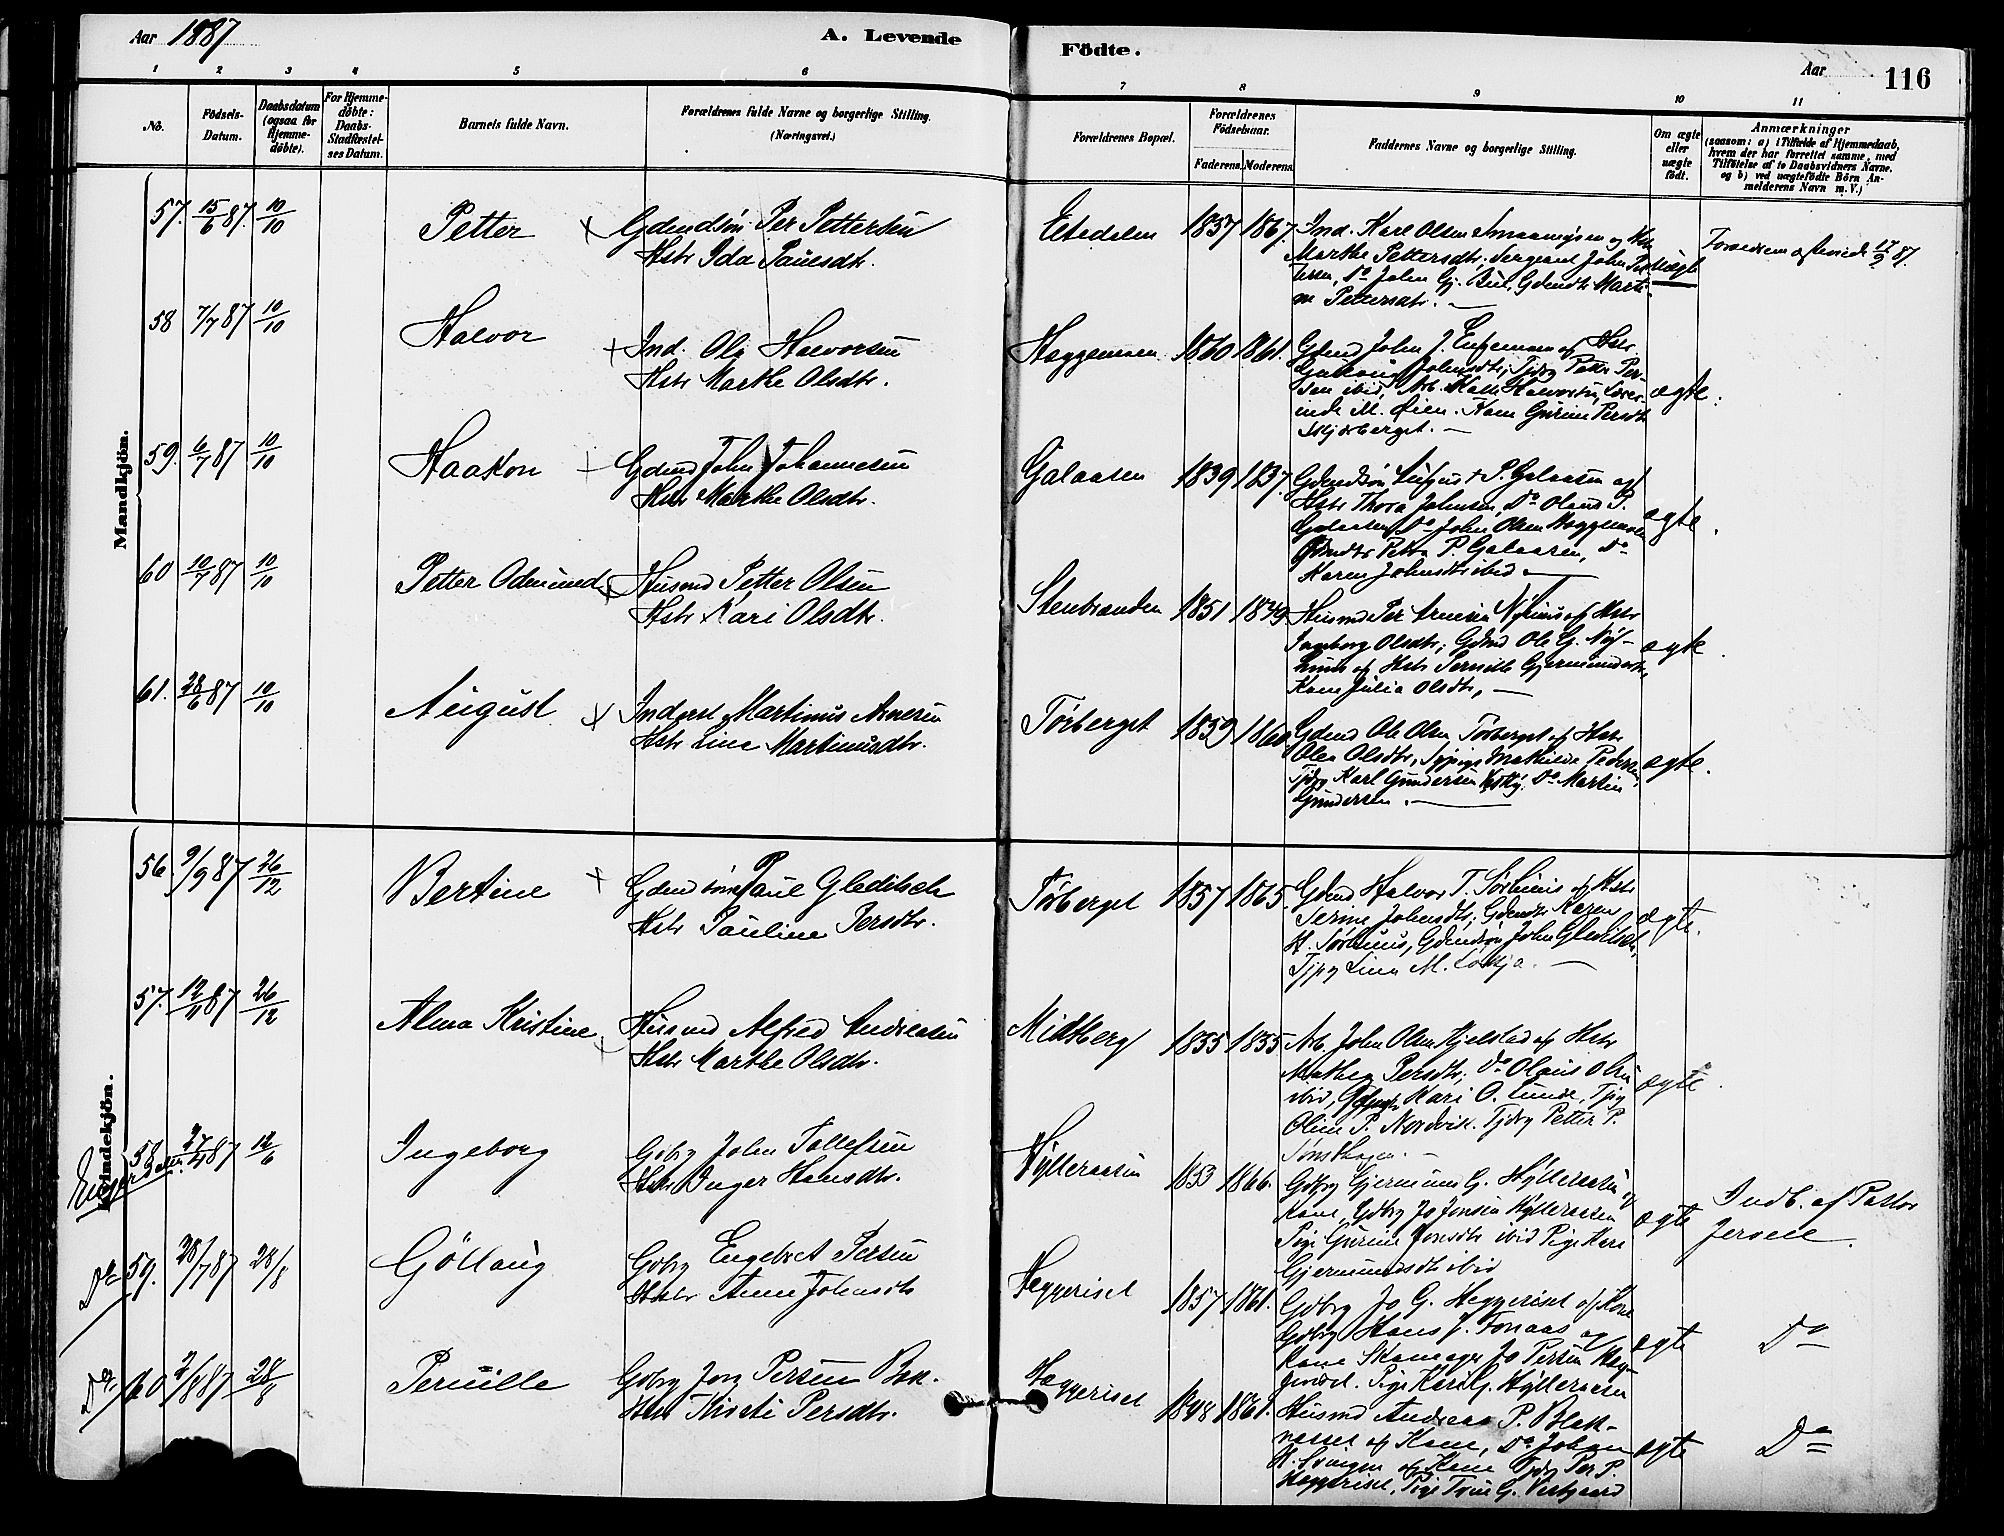 Aar 1887
A. Levende
Födte.
Aar
116
1 2 3 4 5 6 7 8 9 10 11
No.
Födsels-
Datum.
Daabsdatum
(ogsaa for
Hjemme-
døbte).
For Hjemme-
døbte:
Daabs-
Stadfæstel-
ses Datum.
Barnets fulde Navn.
Forældrenes fulde Navne og borgerlige Stilling.
(Næringsvei.)
Forældrenes Bopæl.
Forældrenes
Födselsaar.
Faderens. Moderens.
Faddernes Navne og borgerlige Stilling.
Om ægte
eller
uægte
født.
Anmærkninger
(saasom: a) i Tilfælde af Hjemmedaab,
hvem der har forrettet samme, med
Tilføielse af to Daabsvidners Navne.
og b) ved uægtefødte Börn An-
melderens Navn m. V.)
Mandkjön.
57. 15/6 87. 10/10
Petter
Gdmdsön Per Pettersen
Hstr Ida Paulsdtr.
Eltdalen 1857 1867.
Ind. Karl Olsen
Marthe Pettersdtr. Sergeant John Pet
tersen, Do John Gj. Gdmdtr Marti-
ne Pettersdtr.
uægte
Forældrene 17/9 87.
58 7/7 87 10/10
Halvor
Ind. Ola Halvorsen
Hstr Marthe Olsdtr.
Heggemoen 1860 1861.
Gdmd John J. Hstr
Johnsdtr, Tjdrg Petter Per-
sen ibid, Arb. Halvorsen, Lærer-
inde M. Øien. Kone Gurine Persdtr
Skjærberget.
ægte.
59. 6/7 87 10/10
Haakon
Gdmd John Johannesen
Hstr Marthe Olsdtr.
Galaasen 1839 1837.
Gdmdsön August P. Galaasen og
Hstr Thora Johnsen, Do Olaus P.
Galaasen, Do John Olsen Heggemoen
Gdmdtr Petra P. Galaasen, Do
Karen Johnsdtr ibid
ægte.
60 10/7 87 10/10
Petter Odmund
Husmd Petter Olsen
Hstr Kari Olsdtr.
Stenbranden 1851 1849
Husmd Per Arnesen Nyhuus og Hstr
Ingeborg Olsdtr; Gdmd Ole G. Ny-
huus og Hstr Pernille Gjermundsdtr,
Kone Julia Olsdtr,
ægte.
61. 28/6 87 10/10
August
Inderst Martinus Arnesen
Hstr Line Martinusdtr.
Törberget 1859 1860
Gdmd Ole Olsen Törberget og Hstr
Olea Olsdtr, Sypige Mathilde Pedersen,
Tjdrg Karl Gundersen Do Martin
Gundersen.
ægte.
Kvindekjön.
56. 9/9 87 26/12
Bertine
Gdmdsön Paul Gleditsch
Hstr Pauline Persdtr.
Törberget 1857 1865.
Gdmd Halvor T. Sörhuus og Hstr
Johnsdtr; Gdmdtr Karen
H. Sörhuus, Gdmdsön John Gleditsch,
Tjpg Lina M.
ægte.
57. 12/11 87 26/12
Alma Kristine
Husmd Alfred Andreasen
Hstr Marthe Olsdtr.
Midtberg 1855 1855
Arb. John Olsen Kjelstad og Hstr
Mathea Persdtr; Do Olaus Olsen
ibid, Kari O. Lunde, Tjpg
Oline P. Nordvik. Tjdrg Petter P.
Sönsthagen.
ægte.
Engerdalen.
58 27/4 87 12/6
Ingeborg
Gdbrg John Tollefsen
Hstr Inger Hansdtr.
Hylleraasen 1853 1866.
Gdbrg Gjermund G. Hylleraasen og
Kone, Gdbrg Jo Jonsen Hylleraasen
Pige Gurine Jonsdtr ibid Pige Kari
Gjermundsdtr ibid
ægte
Indb. af Pastor
Jervell.
Do 59. 28/7 87 28/8
Göllaug
Gdbrg Engebret Persen
Hstr Anne Johnsdtr
Heggeriset 1857 1861.
Gdbrg Jo G. Heggeriset og Kone
Gdbrg Hans J. Fonaas og
Kone Skomager Jo Persen
Pige Kari G. Hylleraasen
ægte
Do
Do 60 2/8 87 28/8
Pernille
Gdbrg Jorg Persen Bak.
Hstr Kirsti Persdtr.
Heggeriset 1848 1861.
Husmd Andreas P. Blak-
nesset og Kone, Do Johan
H. Svingen og Kone Tjdrg Per P.
Heggeriset, Pige Trine G. Vestgaard
ægte
Do